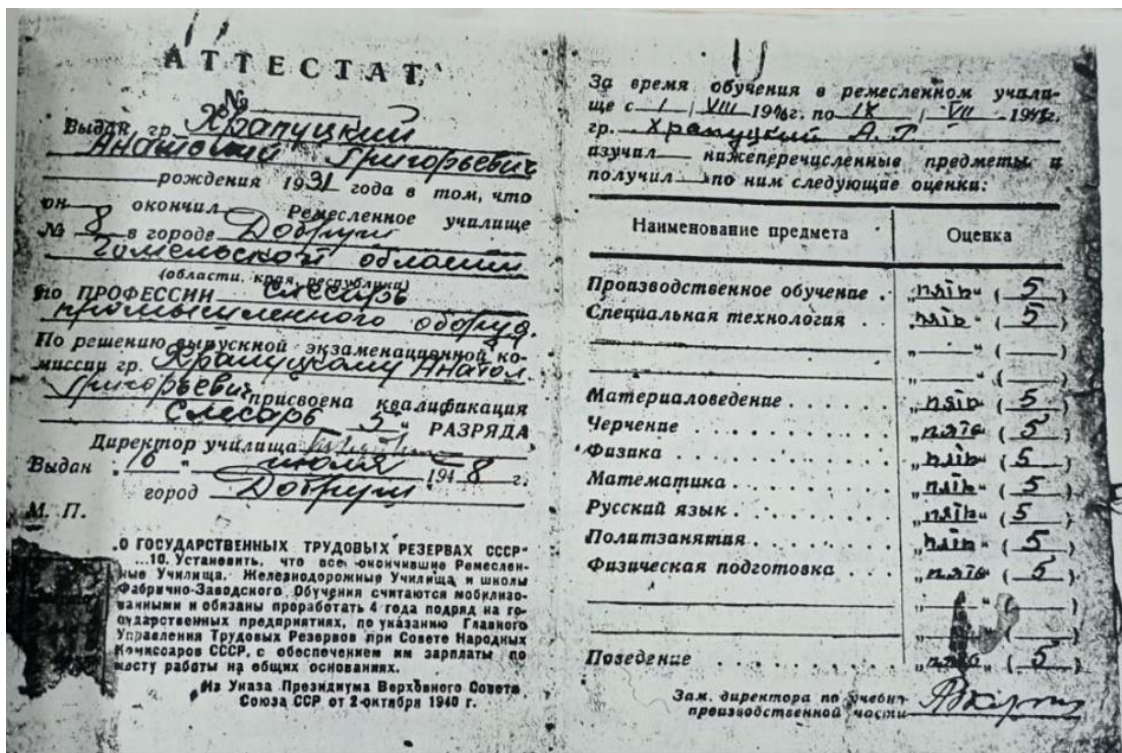 АТТЕСТАТ
№
Выдан гр. Храпуцкий
Анатолий Григорьевич
рождения 1931 года в том, что
он окончил Ремесленное училище
№ 8 в городе Добруш
Гомельской области
(области, края, республики)
по ПРОФЕССИИ Слесарь
промышленного оборуд.
По решению выпускной экзаменационной ко-
миссии гр. Храпуцкому Анатол.
Григорьевич присвоена квалификация
Слесарь 5" РАЗРЯДА
Директор училища
Выдан "16" июля 1948 г.
город Добруш
М. П.
„О ГОСУДАРСТВЕННЫХ ТРУДОВЫХ РЕЗЕРВАХ СССР"
...10. Установить, что все окончившие Ремеслен-
ные Училища, Железнодорожные Училища и школы
Фабрично-Заводского Обучения считаются мобилизо-
ванными и обязаны проработать 4 года подряд на го-
сударственных предприятиях, по указанию Главного
Управления Трудовых Резервов при Совете Народных
Комиссаров СССР, с обеспечением им зарплаты по
месту работы на общих основаниях.
Из Указа Президиума Верховного Совета
Союза ССР от 2 октября 1940 г.
За время обучения в ремесленном учили-
ще с 1 / VIII 194 г. по IX / VII 194 г.
гр. Храпуцкий А. Г
изучил нижеперечисленные предметы и
получил по ним следующие оценки:
Наименование предмета Оценка
Производственное обучение . „пять" ( 5 )
Специальная технология . . „пять" ( 5 )
„ " ( )
„ " ( )
Материаловедение . . . . . . „пять" ( 5 )
Черчение . . . . . . . . . . „пять" ( 5 )
Физика . . . . . . . . . . . „пять" ( 5 )
Математика . . . . . . . . . „пять" ( 5 )
Русский язык . . . . . . . . „пять" ( 5 )
Политзанятия . . . . . . . . „пять" ( 5 )
Физическая подготовка . . . „пять" ( 5 )
" ( )
„ " ( )
Поведение . . . . . . . . . „пять" ( 5 )
Зам. директора по учебно-
производственной части